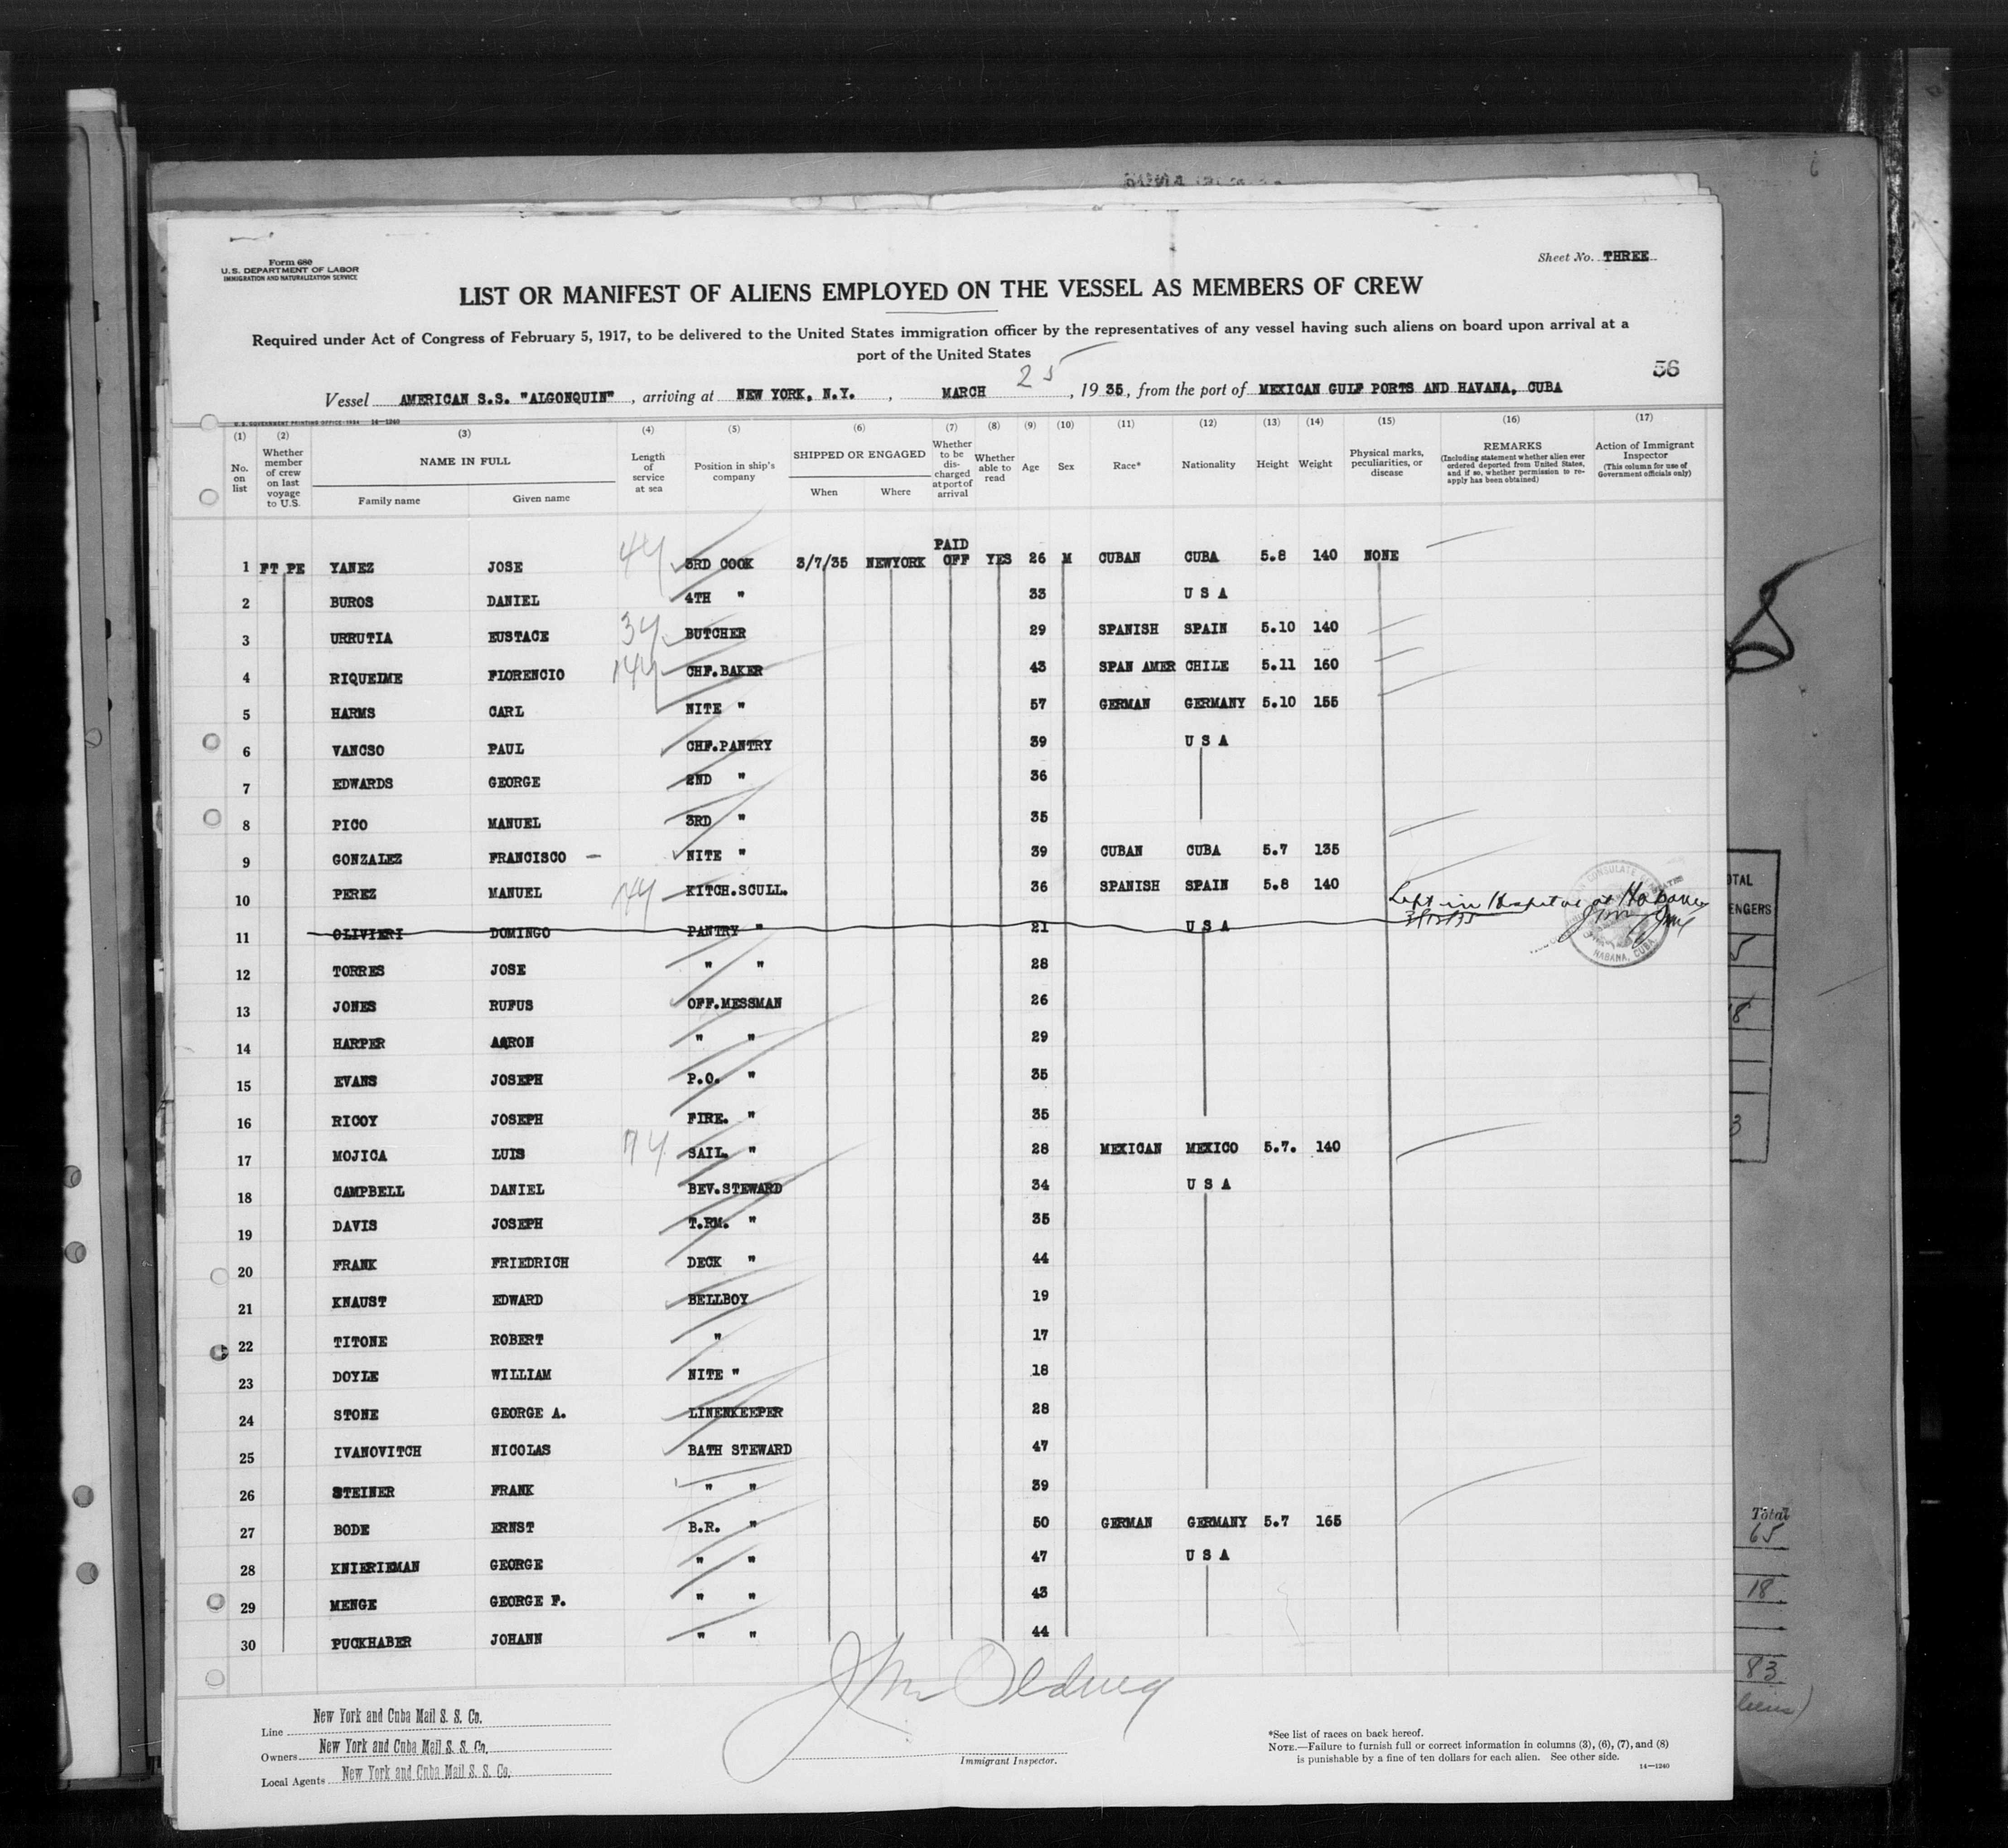 Form 680
U.S. DEPARTMENT OF LABOR
IMMIGRATION AND NATURALIZATION SERVICE
Sheet No. THREE
LIST OR MANIFEST OF ALIENS EMPLOYED ON THE VESSEL AS MEMBERS OF CREW
Required under Act of Congress of February 5, 1917, to be delivered to the United States immigration officer by the representatives of any vessel having such aliens on board upon arrival at a
port of the United States
56
Vessel AMERICAN S.S. "ALGONQUIN", arriving at NEW YORK, N.Y., MARCH 25, 1935, from the port of MEXICAN GULF PORTS AND HAVANA, CUBA
U. S. GOVERNMENT PRINTING OFFICE: 1934 14—1240
(1) (2) (3) (4) (5) (6) (7) (8) (9) (10) (11) (12) (13) (14) (15) (16) (17)
No. on list
Whether member of crew on last voyage to U.S.
NAME IN FULL
Family name
Given name
Length of service at sea
Position in ship's company
SHIPPED OR ENGAGED
When
Where
Whether to be discharged at port of arrival
Whether able to read
Age
Sex
Race*
Nationality
Height
Weight
Physical marks, peculiarities, or disease
REMARKS
(Including statement whether alien ever ordered deported from United States, and if so, whether permission to reapply has been obtained)
Action of Immigrant Inspector
(This column for use of Government officials only)
1 FT PE YANEZ JOSE 4y 3RD COOK 3/7/35 NEWYORK PAID OFF YES 26 M CUBAN CUBA 5.8 140 NONE
2 BUROS DANIEL 4TH " 33 U S A
3 URRUTIA EUSTACE 3y BUTCHER 29 SPANISH SPAIN 5.10 140
4 RIQUELME FLORENCIO 14y CHF.BAKER 43 SPAN AMER CHILE 5.11 160
5 HARMS CARL NITE " 57 GERMAN GERMANY 5.10 155
6 VANCSO PAUL CHF.PANTRY 39 U S A
7 EDWARDS GEORGE 2ND " 36
8 PICO MANUEL 3RD " 35
9 GONZALEZ FRANCISCO — NITE " 39 CUBAN CUBA 5.7 135
10 PEREZ MANUEL KITCH.SCULL. 36 SPANISH SPAIN 5.8 140
Left in Hospital at Habana
11 OLIVIERI DOMINGO PANTRY " 21 U S A
HABANA, CUBA
12 TORRES JOSE " " 28
13 JONES RUFUS OFF.MESSMAN 26
14 HARPER AARON " " 29
15 EVANS JOSEPH P.O. " 35
16 RICOY JOSEPH FIRE. " 35
17 MOJICA LUIS 7y SAIL. " 28 MEXICAN MEXICO 5.7. 140
18 CAMPBELL DANIEL BEV.STEWARD 34 U S A
19 DAVIS JOSEPH T.RM. " 35
20 FRANK FRIEDRICH DECK " 44
21 KNAUST EDWARD BELLBOY 19
22 TITONE ROBERT " 17
23 DOYLE WILLIAM NITE " 18
24 STONE GEORGE A. LINENKEEPER 28
25 IVANOVITCH NICOLAS BATH STEWARD 47
26 STEINER FRANK " " 39
27 BODE ERNST B.R. " 50 GERMAN GERMANY 5.7 165
28 KNIERIEMAN GEORGE " " 47 U S A
29 MENGE GEORGE F. " " 43
30 PUCKHABER JOHANN " " 44
Line New York and Cuba Mail S. S. Co.
Owners New York and Cuba Mail S. S. Co.
Local Agents New York and Cuba Mail S. S. Co.
Immigrant Inspector.
*See list of races on back hereof.
NOTE.—Failure to furnish full or correct information in columns (3), (6), (7), and (8)
is punishable by a fine of ten dollars for each alien. See other side.
14—1240
Total
65
18
83